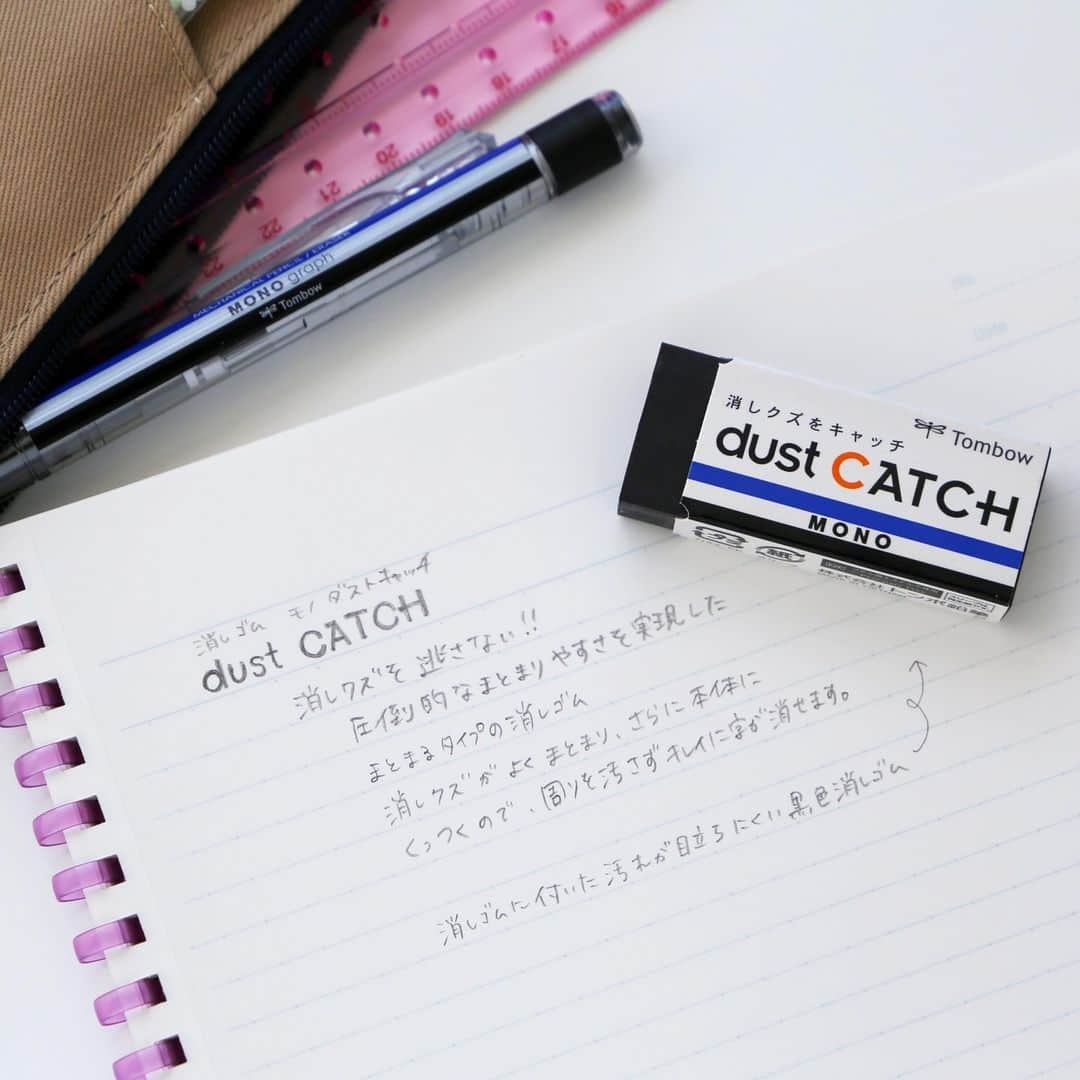 16
17
18
19
20
21
22
23
MECHANICAL PENCIL / ERASER
MONO graph
Tombow
消しクズをキャッチ
Tombow
dust CATCH
MONO
紙
株式会社トンボ鉛筆
Date
消しゴム モノ ダストキャッチ
dust CATCH
消しクズを逃さない!!
圧倒的なまとまりやすさを実現した
まとまるタイプの消しゴム
消しクズがよくまとまり、さらに本体に
くっつくので、周りを汚さずキレイに字が消せます。
消しゴムに付いた汚れが目立ちにくい黒色消しゴム